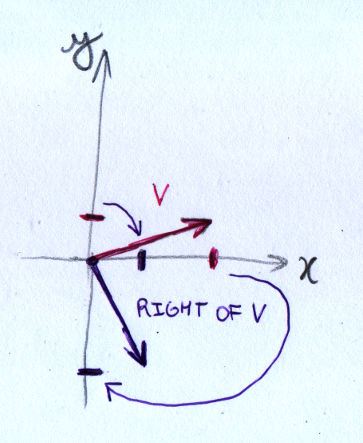 y
V
x
RIGHT OF V